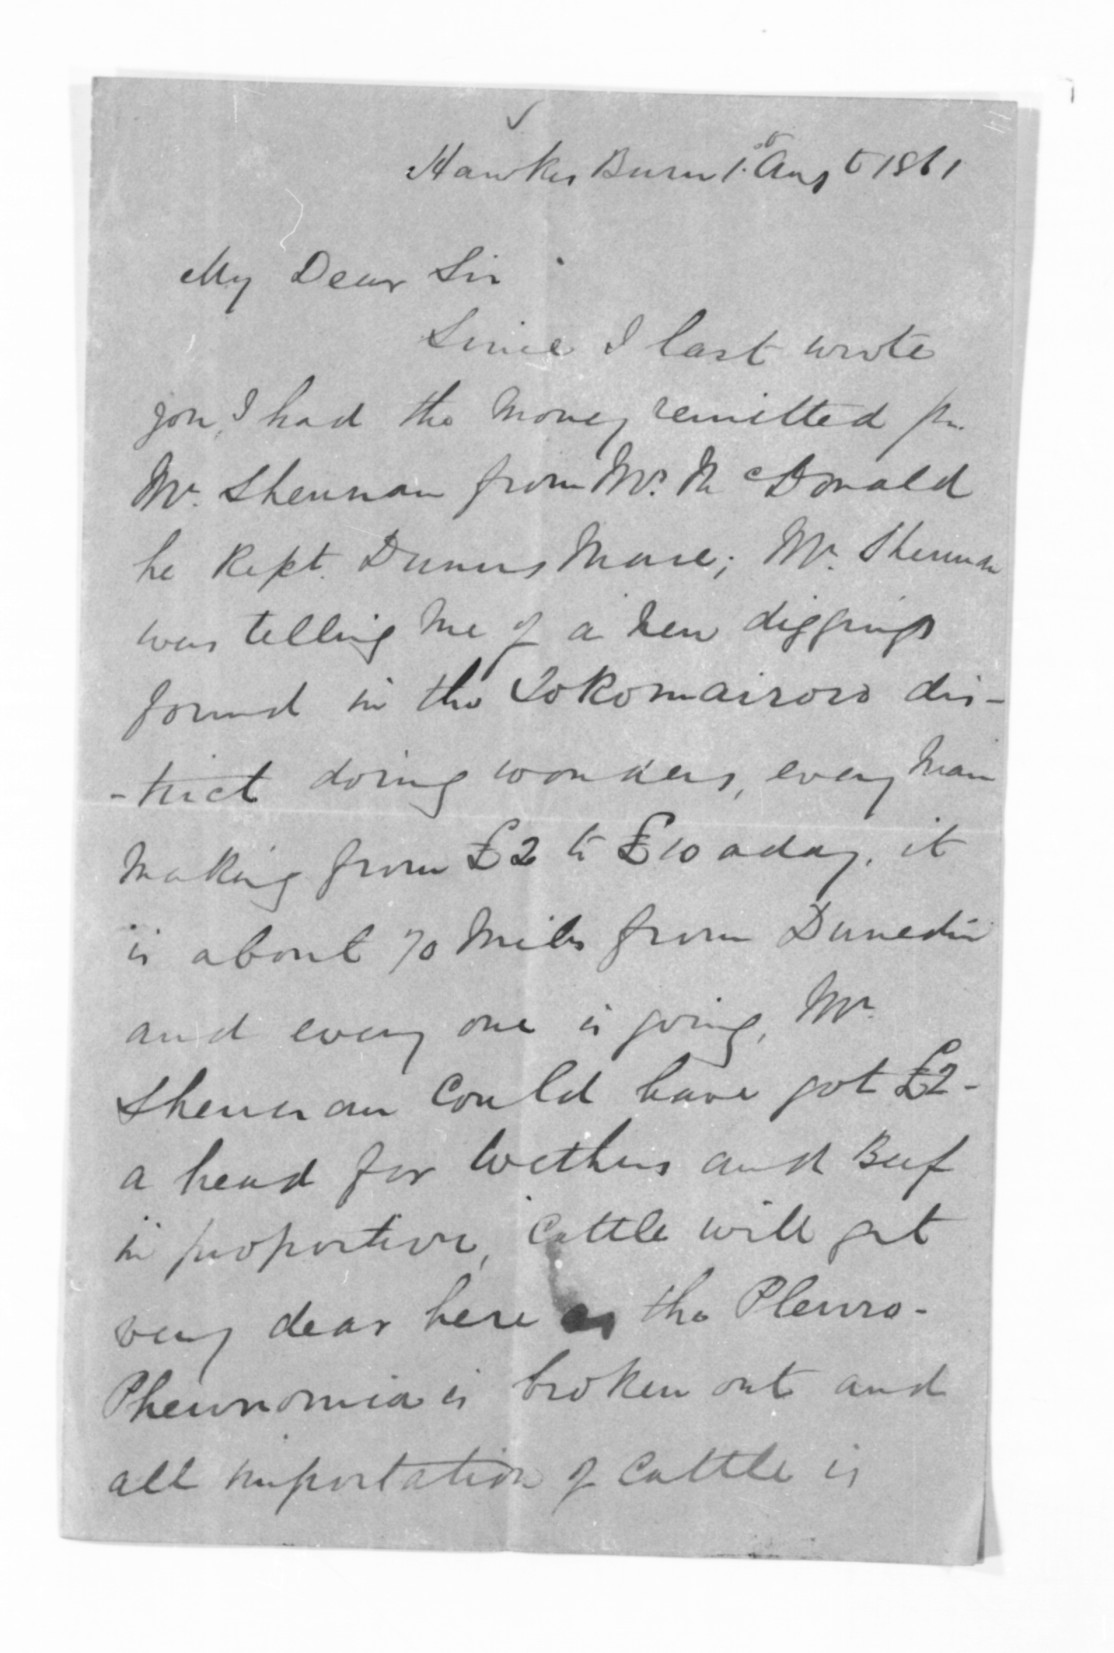 Hawkes Burn 1st Augt 1861
My Dear Sir
Since I last wrote
you, I had the money remitted pr.
Mr. Shennan from Mr. McDonald
he kept Mare; Mr. Shennan
was telling me of a new diggings
found in the Tokomairoro dis-
-trict doing wonders, every man
making from £2 to £10 a day, it
is about 70 miles from Dunedin
and every one is going, Mr.
Shennan could have got £2-
a head for Wethers and Beef
in proportion, Cattle will get
very dear here as the Pleuro-
Pheunomia is broken out and
all importation of Cattle is